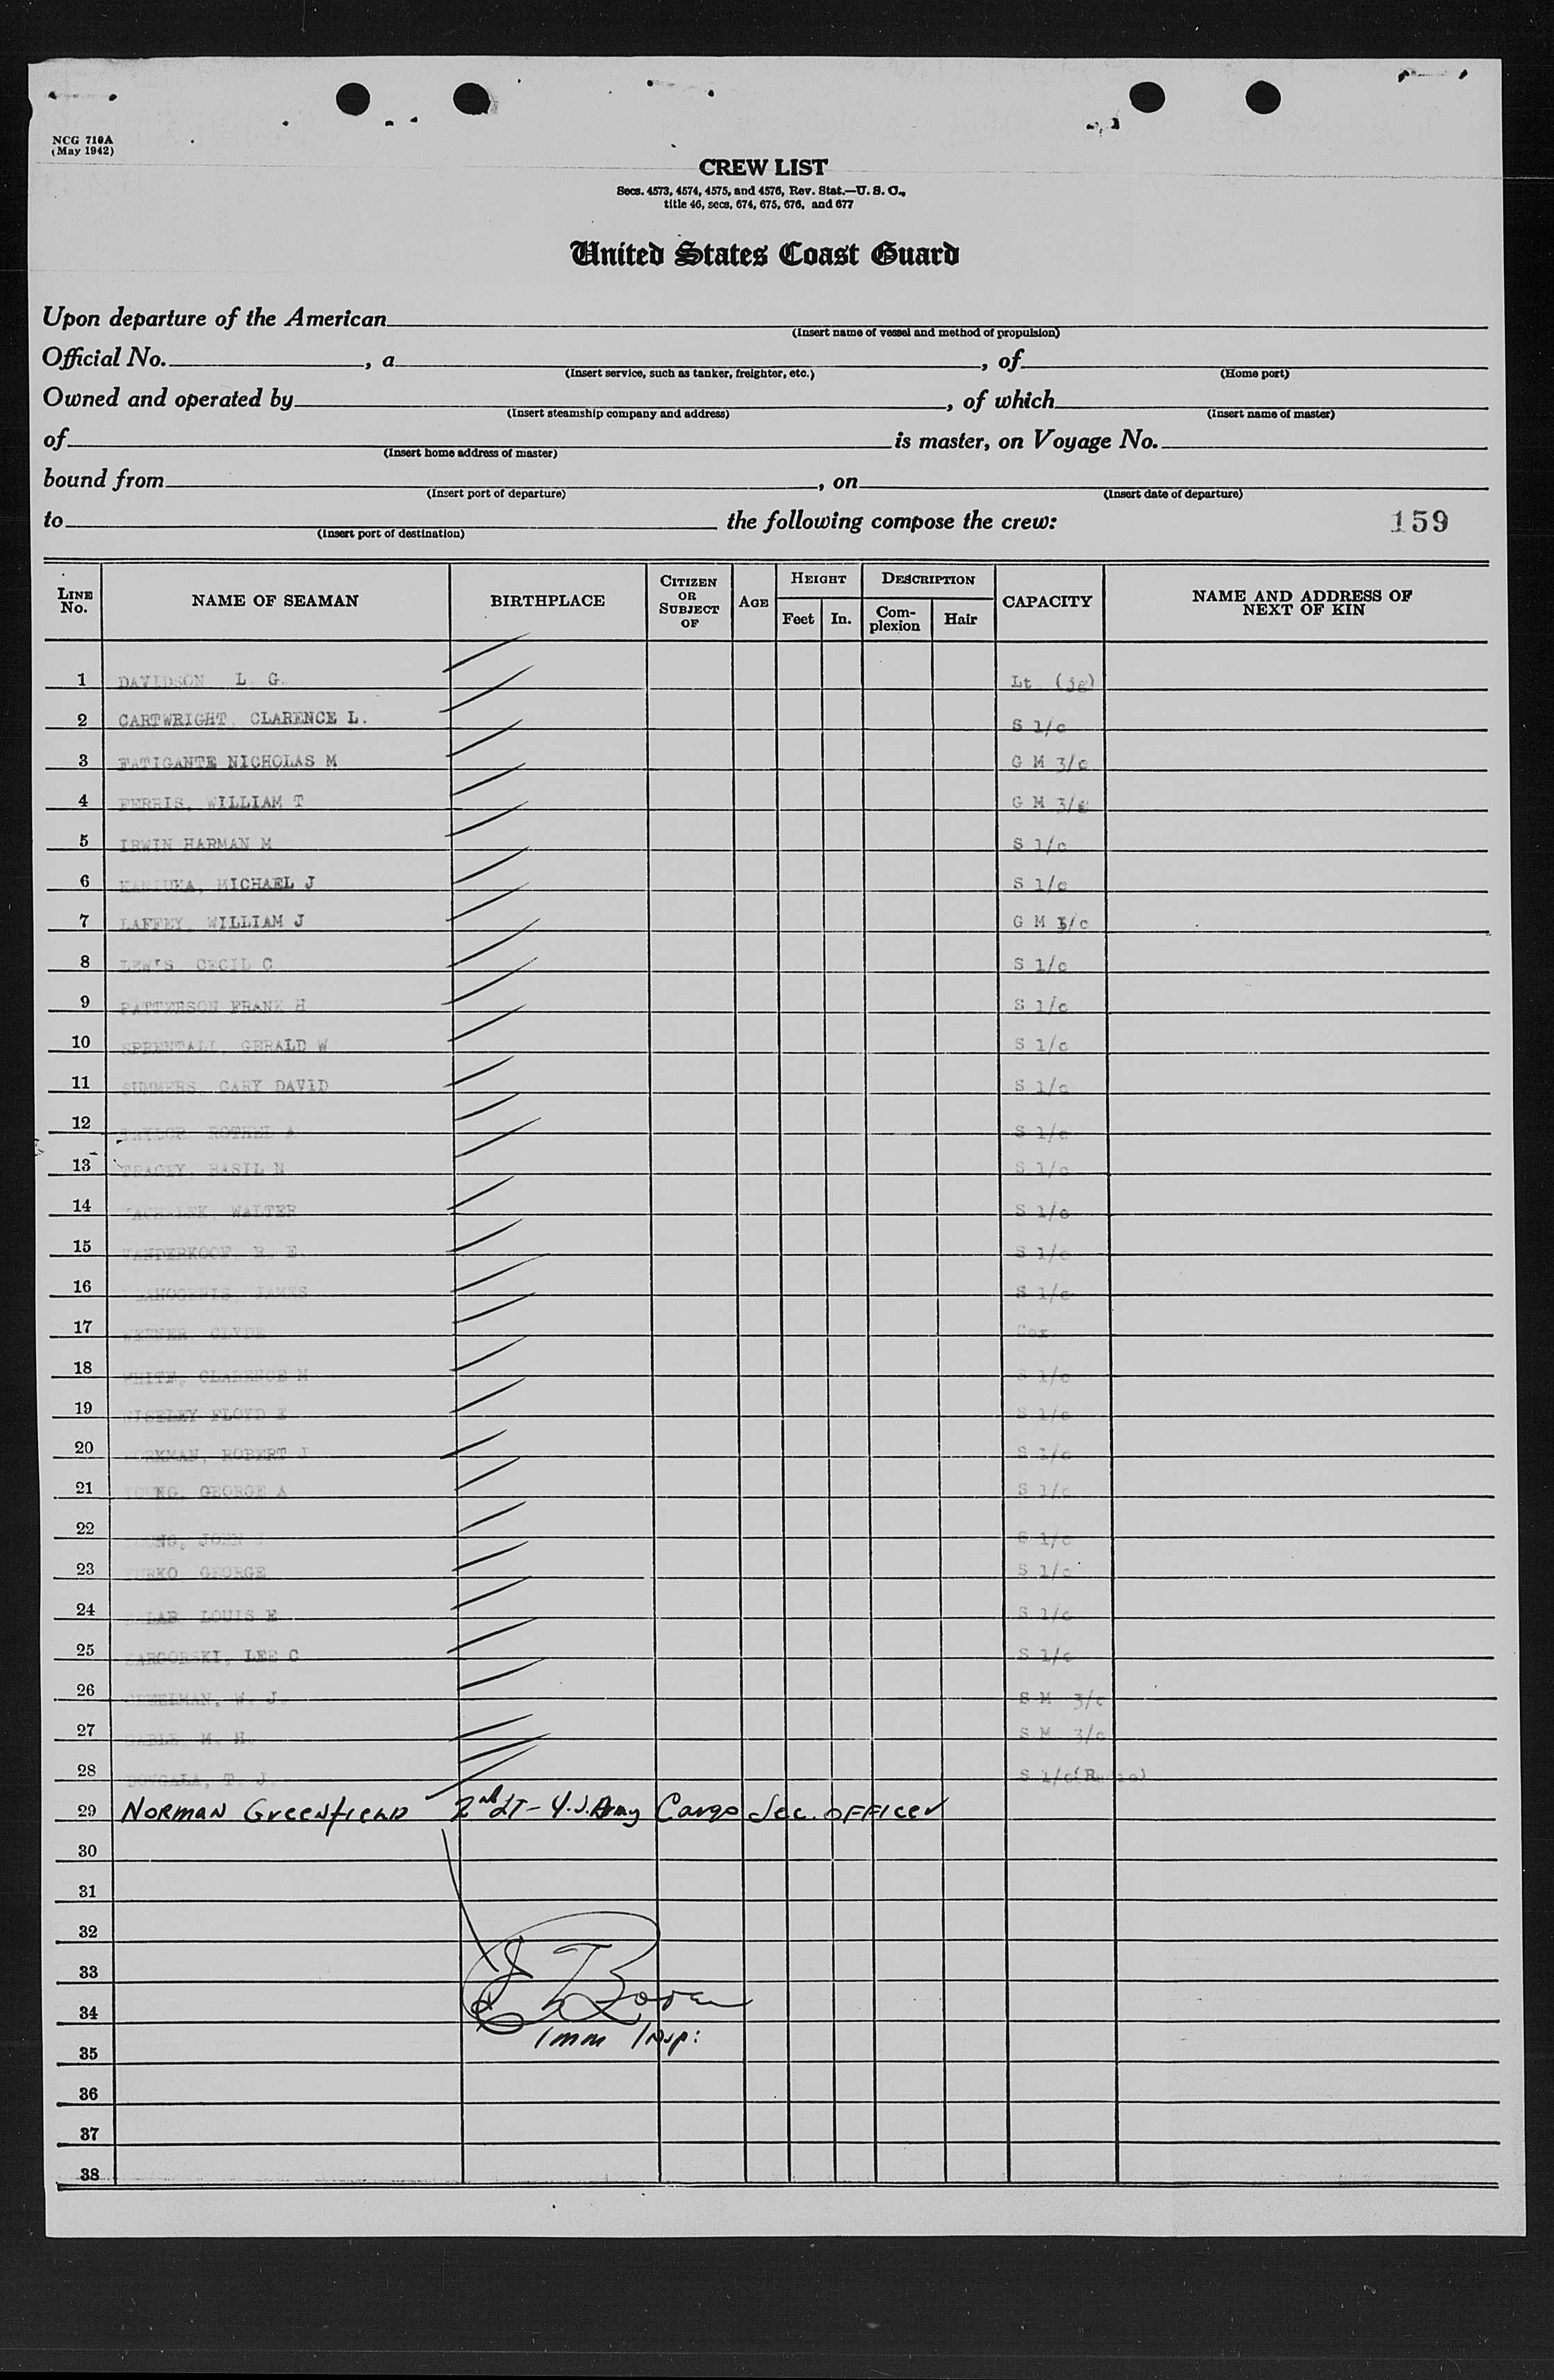 NCG 710A
(May 1942)
CREW LIST
Secs. 4573, 4574, 4575, and 4576, Rev. Stat.—U. S. C.,
title 46, secs. 674, 675, 676, and 677
United States Coast Guard
Upon departure of the American
(Insert name of vessel and method of propulsion)
Official No. , a , of
(Insert service, such as tanker, freighter, etc.) (Home port)
Owned and operated by , of which
(Insert steamship company and address) (Insert name of master)
of is master, on Voyage No.
(Insert home address of master)
bound from , on
(Insert port of departure) (Insert date of departure)
to the following compose the crew: 159
(Insert port of destination)
LINE No. NAME OF SEAMAN BIRTHPLACE CITIZEN OR SUBJECT OF AGE HEIGHT Feet In. DESCRIPTION Complexion Hair CAPACITY NAME AND ADDRESS OF NEXT OF KIN
1 DAVIDSON L. G. Lt (jg)
2 CARTWRIGHT, CLARENCE L. S 1/c
3 FATIGANTE NICHOLAS M G M 3/c
4 FERRIS, WILLIAM T G M 3/c
5 IRWIN HARMAN M S 1/c
6 MICHAEL J S 1/c
7 LAFFEY, WILLIAM J G M 3/c
8 LEWIS CECIL C S 1/c
9 PATTERSON FRANK H S 1/c
10 GERALD W S 1/c
11 SUMMERS, CARY DAVID S 1/c
12 TAYLOR A S 1/c
13 TRACEY, BASIL N S 1/c
14 WALTER S 1/c
15 VANDERKOOF, R. E. S 1/c
16 JAMES S 1/c
17 CLYDE Cox
18 WHITE, CLARENCE M S 1/c
19 WISELEY FLOYD E S 1/c
20 WORKMAN, ROBERT J S 1/c
21 YOUNG, GEORGE A S 1/c
22 JOHN S 1/c
23 GEORGE S 1/c
24 LOUIS E S 1/c
25 LEE C S 1/c
26 W. J. S M 3/c
27 M. H. S M 3/c
28 T. J. S 1/c(Radio)
29 NORMAN GREENFIELD 2nd LT - U.S. Army Cargo Sec. OFFICER
30
31
32
33
34
Imm Insp:
35
36
37
38